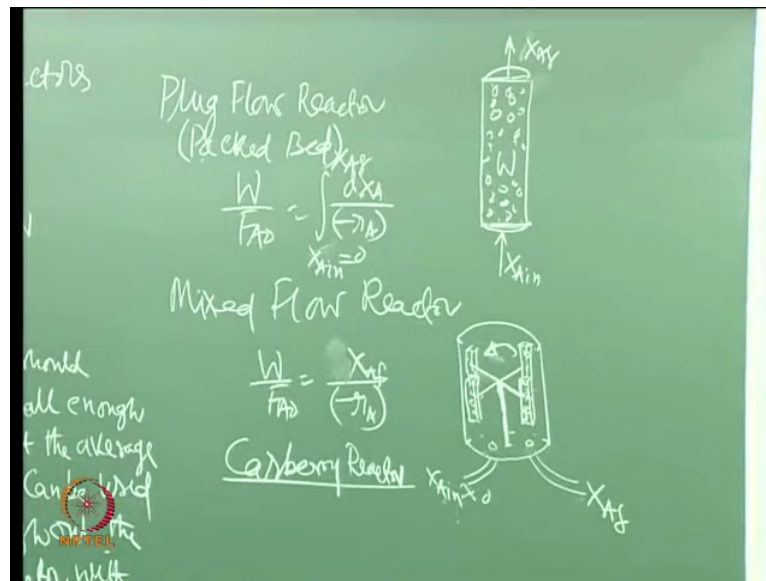 ctors
Plug Flow Reactor
(Packed Bed)
W/F_A0 = ∫_{X_Ain=0}^{X_Af} dX_A/(-r_A)
X_Af
W
X_Ain
Mixed Flow Reactor
W/F_A0 = X_Af/(-r_A)
Carberry Reactor
X_Ain = 0
X_Af
hould
all enough
t the average
Can be used
NPTEL